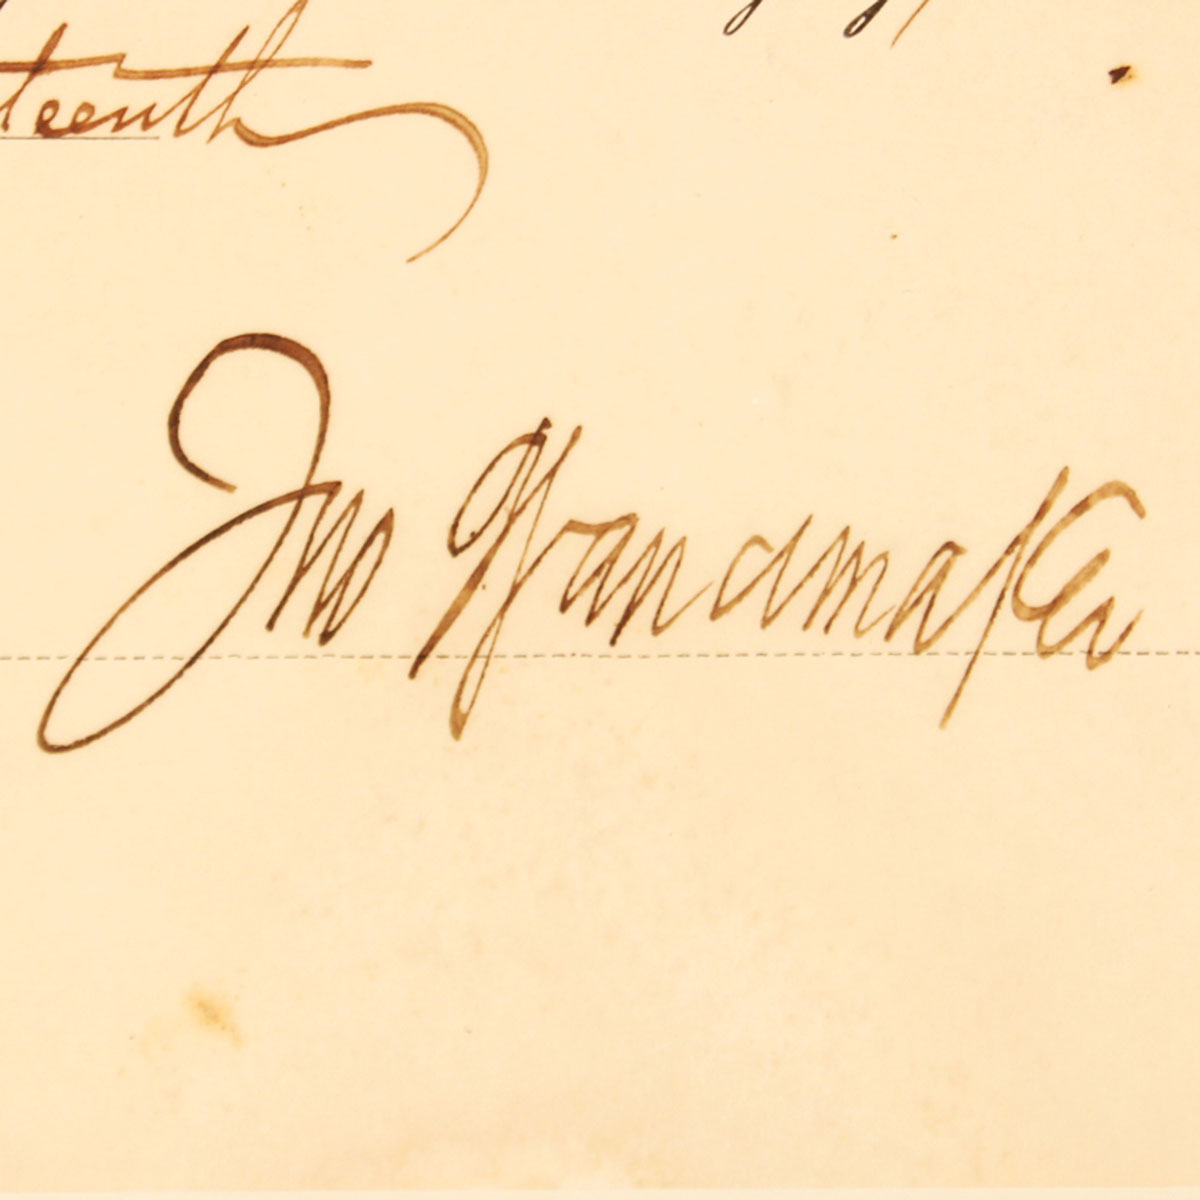 teenth
Jno Wanamaker